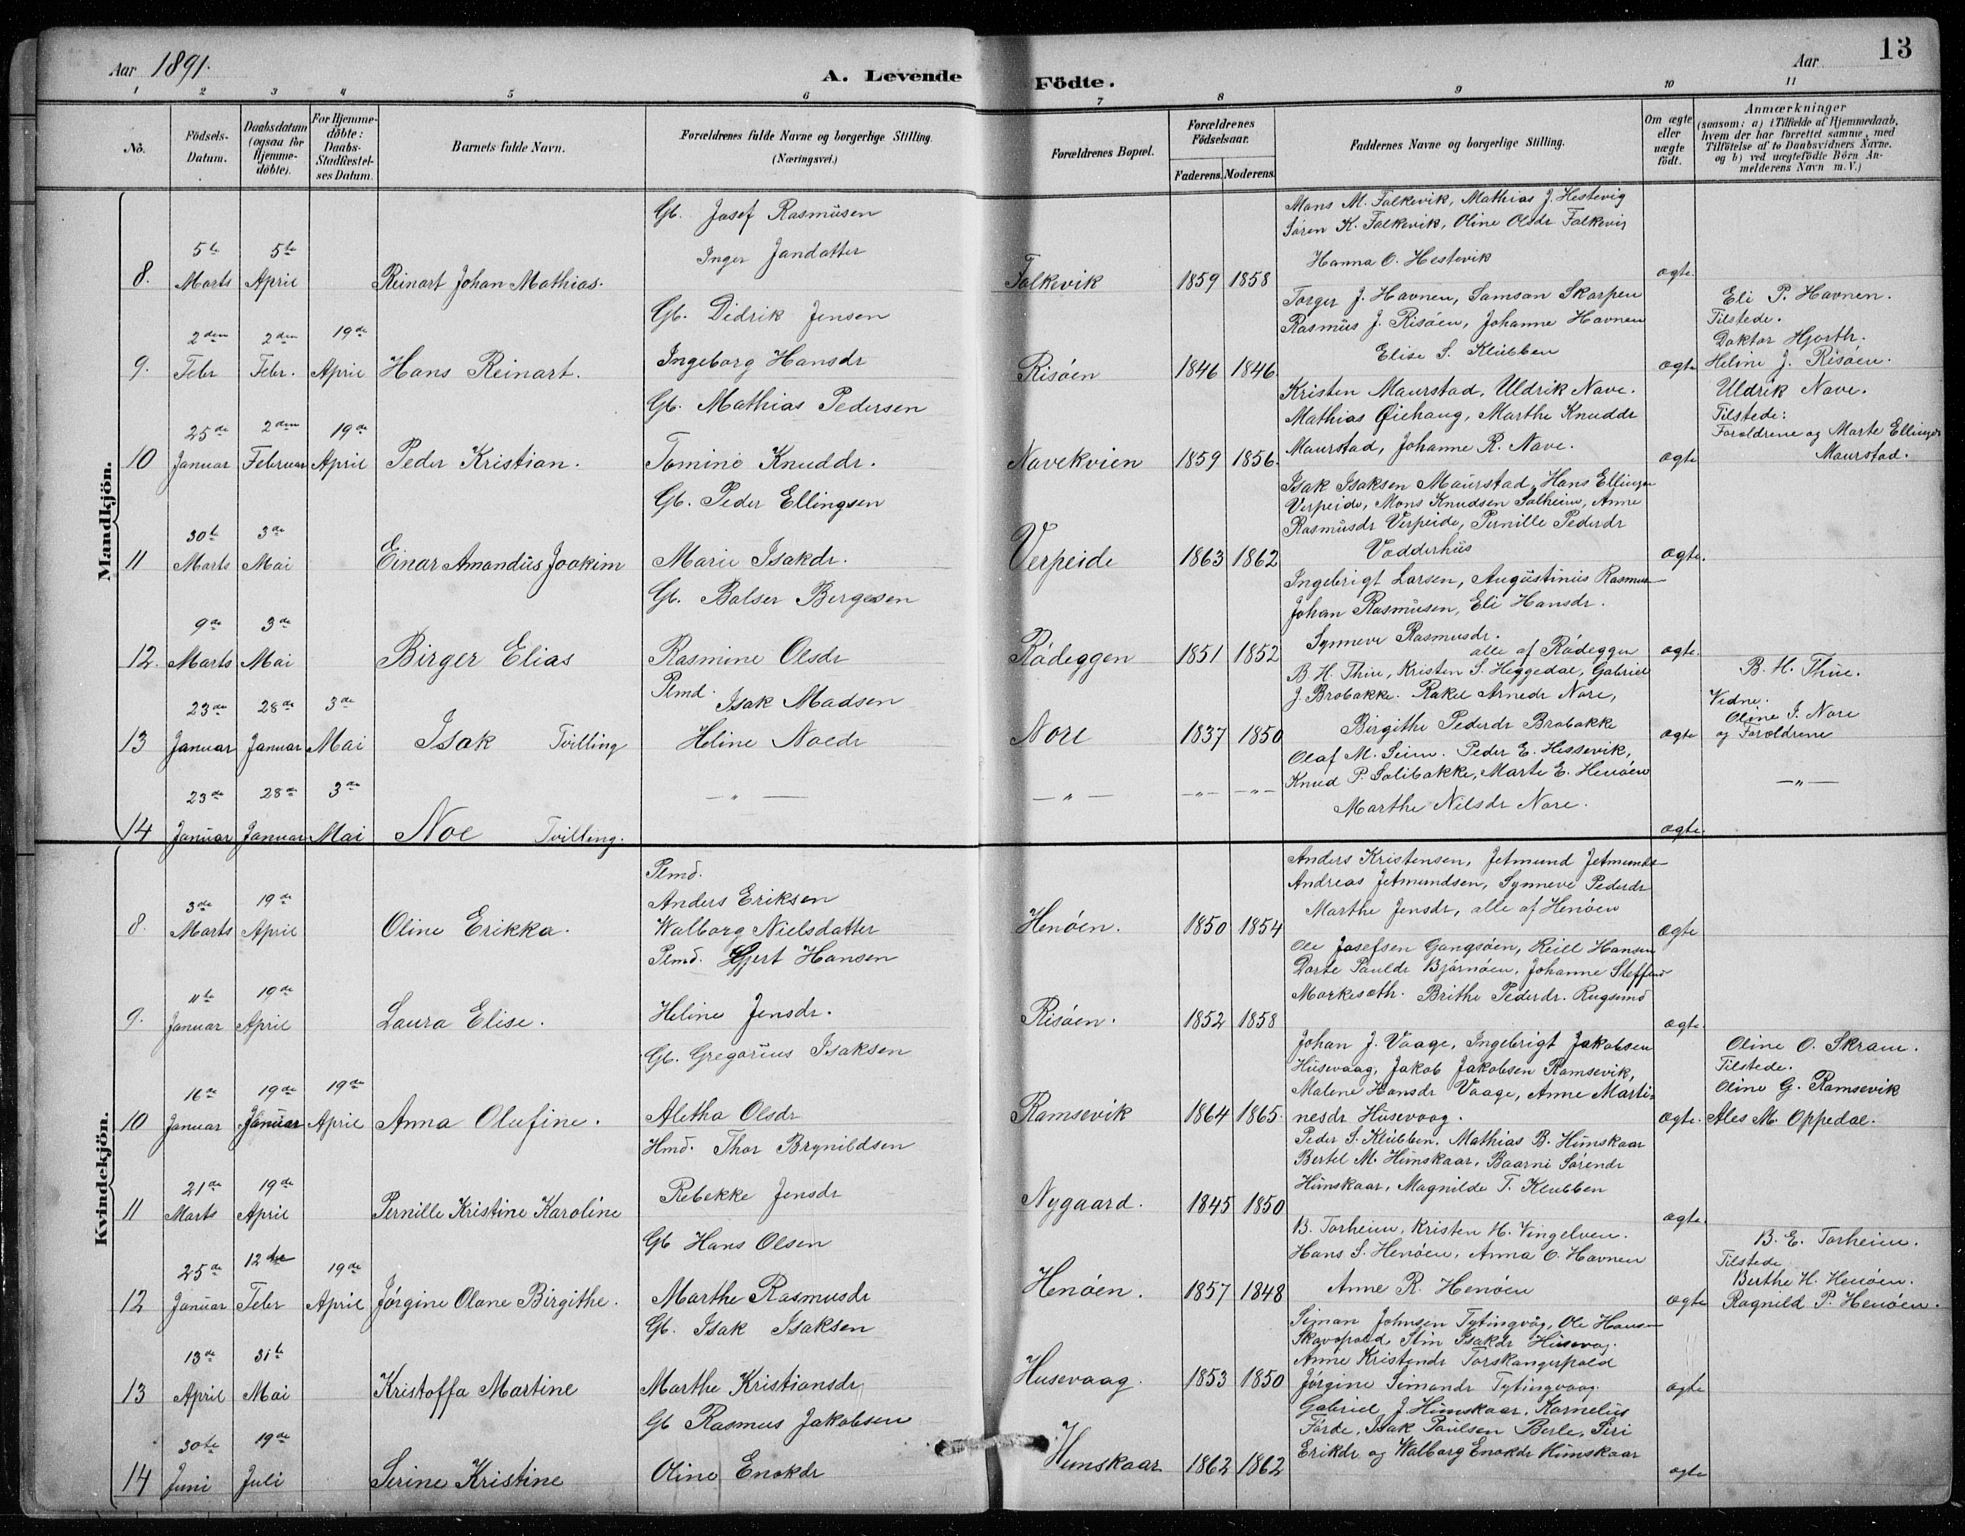 Aar 1891.
A. Levende Födte.
Aar
13
1 2 3 4 5 6 7 8 9 10 11
Nô.
Födsels-Datum.
Daabsdatum (ogsaa for Hjemmedöbte).
For Hjemmedöbte: Daabs-Stadfæstelses Datum.
Barnets fulde Navn.
Forældrenes fulde Navne og borgerlige Stilling. (Næringsvei.)
Forældrenes Bopæl.
Forældrenes Födselsaar.
Faderens. Moderens.
Faddernes Navne og borgerlige Stilling.
Om ægte eller uægte födt.
Anmærkninger
(saasom: a) i Tilfælde af Hjemmedaab, hvem der har forrettet samme, med Tilföielse af to Daabsvidners Navne. og b) ved uægtefödte Börn Anmelderens Navn m.V.)
Mandkjön.
8. 5te Marts 5te April Reinart Johan Mathias.
Gb. Josef Rasmusen
Inger Jandatter
Falkevik 1859 1858
Mons M. Falkevik, Mathias J. Hestevig
Søren K. Falkevik, Oline Olsdr Falkevig
Hanna O. Hestevik
ægte
9. 2den Febr 2den Febr. 19de April Hans Reinart.
Gb. Didrik Jensen
Ingeborg Hansdr
Risöen 1846 1846
Torger J. Havnen, Samson Skarpen
Rasmus J. Risöen, Johanne Havnen
Elise S. Klubben
ægte
Eli P. Havnen.
Tilstede.
Doktor Hjorth.
Heline J. Risöen.
10 25de Januar 2den Februar 19de April Peder Kristian.
Gb. Mathias Pedersen
Tomine Knuddr.
Navekvien 1859 1856.
Kristen Maurstad, Uldrik Nave.
Mathias Øiehaug, Marthe Knuddr
Maurstad, Johanne R. Nave.
ægte
Uldrik Nave.
Tilstede:
Foroldrene og Marte Ellingsdr
Maurstad.
11 30te Marts 3de Mai Einar Amandus Joakim
Gb. Peder Ellingsen
Marie Isakdr.
Verpeide 1863 1862
Isak Isaksen Maurstad, Hans Ellingsen
Verpeide, Mons Knudsen Solheim, Anne
Rasmusdr Verpeide, Pernille Pederdr
Vadderhus
ægte.
12. 9de Marts 3de Mai Birger Elias
Gb. Balser Børgesen
Rasmine Olsdr
Rødeggen 1851 1852
Ingebrigt Larsen, Augustinus Rasmus-
Johan Rasmusen, Eli Hansdr.
Synneve Rasmusdr.
alle af Rødeggen
ægte.
13 23de Januar 28de Januar 3de Mai Isak Tvilling
Plmd. Isak Madsen
Heline Noedr
Nore 1837 1850
B. H. Thue, Kristen S. Heggedal, Gabriel
J. Brobakke. Rakel Arnedr Nore,
Birgithe Pederdr Brobakke
ægte
B. H. Thue.
Vidne.
Oline I. Nore
og Foroldrene
14 23de Januar 28de Januar 3de Mai Noe Tvilling.
— " — — " — — " — — " —
Olaf M. Seim. Peder E. Hessevik,
Knud P. Solibakke, Marte E. Henöen
Marthe Nilsdr Nore.
ægte.
— " —
Kvindekjön.
8. 3de Marts 19de April Oline Erikka.
Plmd.
Anders Eriksen
Walborg Nielsdatter
Henöen. 1850 1854
Anders Kristensen, Jetmund Jetmunds-
Andreas Jetmundsen, Synneve Pederdr
Marthe Jensdr, alle af Henöen
ægte
9. 11te Januar 19de April Laura Elise.
Plmd. Gjert Hansen
Heline Jensdr.
Risöen. 1852 1858
Ole Josefsen Gangsöen, Reill Hansen
Dorte Pauldr Björnöen, Johanne Steffens-
Markesæth. Brithe Pederdr. Rugsund
ægte.
10 16de Januar 19de Januar 19de April Anna Olufine.
Gb. Gregorius Isaksen
Aletha Olsdr
Ramsevik 1864 1865.
Johan J. Vaage, Ingebrigt Jakobsen
Husevaag, Jakob Jakobsen Ramsevik,
Malene Hansdr Vaage, Anne Marti-
nesdr Husevaag.
ægte.
Oline O. Skram.
Tilstede.
Oline G. Ramsevik
Ales M. Oppedal.
11 21de Marts 19de April Pernille Kristine Karoline
Hmd. Thor Brynildsen
Rebekke Jensdr
Nygaard. 1845 1850
Peder S. Klubben. Mathias B. Humskaar
Bertel M. Humskaar, Baarni Sørendr
Humskaar, Magnilde T. Klubben
ægte.
12 25de Januar 12te Febr 19de April Jørgine Olane Birgithe.
Gb Hans Olsen
Marthe Rasmusdr
Henöen. 1857 1848
B. Torheim, Kristen H. Vingelven.
Hans S. Henöen, Anna O. Havnen
Anne R. Henöen
ægte
B. E. Torheim.
Tilstede
Berthe H. Henöen.
Ragnild P. Henöen.
13 13de April 31te Mai Kristoffa Martine
Gb. Isak Isaksen
Marthe Kristiansdr
Husevaag. 1853 1850
Siman Johnsen Tytingvåg, Ole Hans-
Skavøpold, Stin Isakdr Husevag.
Anne Kristendr Torskangerpold
Jørgine Simondr Tytingvaag.
ægte
14 30te Juni 19de Juli Serine Kristine
Gb Rasmus Jakobsen
Oline Enokdr
Humskaar 1862 1862
Gabriel J. Humskaar, Kornelius
Førde, Isak Paulsen Berle, Siri
Erikdr og Walborg Enokdr Humskaar
ægte